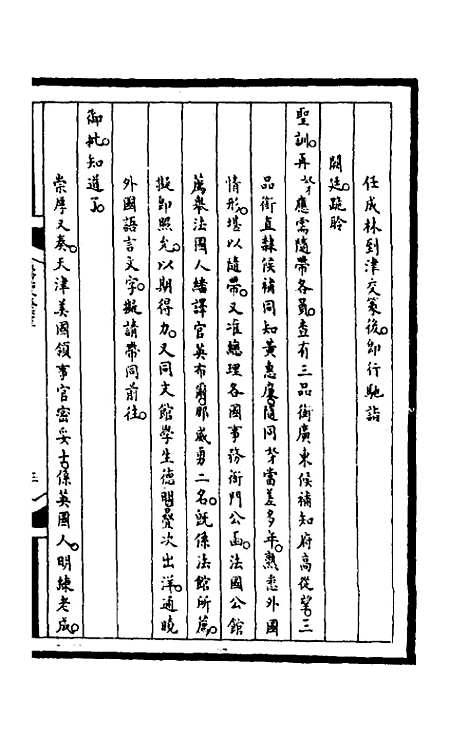 任成林到津交篆後。卽行馳詣
闕廷。跪聆
聖訓。再奴才應需隨帶各員。查有三品銜廣東候補知府高從望。三
品銜直隸候補同知黃惠廉。隨同奴才當差多年。熟悉外國
情形。堪以隨帶。又准總理各國事務衙門公函。法國公館
薦舉法國人繙譯官英布爾。那威勇二名。旣係法館所薦。
擬卽照允。以期得力。又同文館學生德明。疊次出洋。通曉
外國語言文字。擬請帶同前往。
御批。知道了。
崇厚又奏。天津美國領事官密妥士。係英國人。明練老成。
三